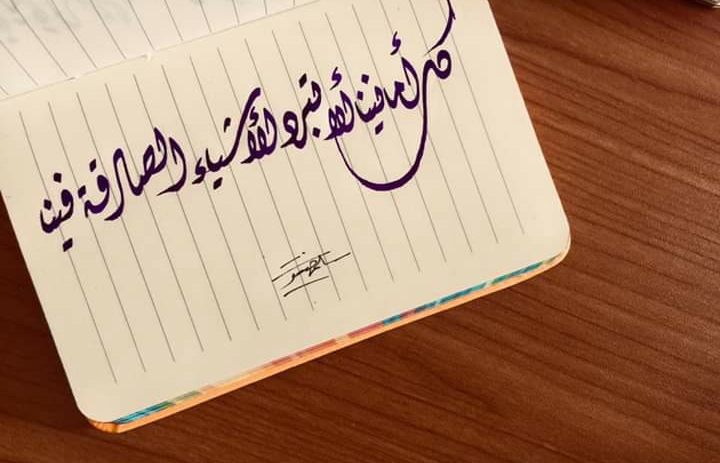 كل أمانينا ألا تبرد الأشياء الصادقة فينا